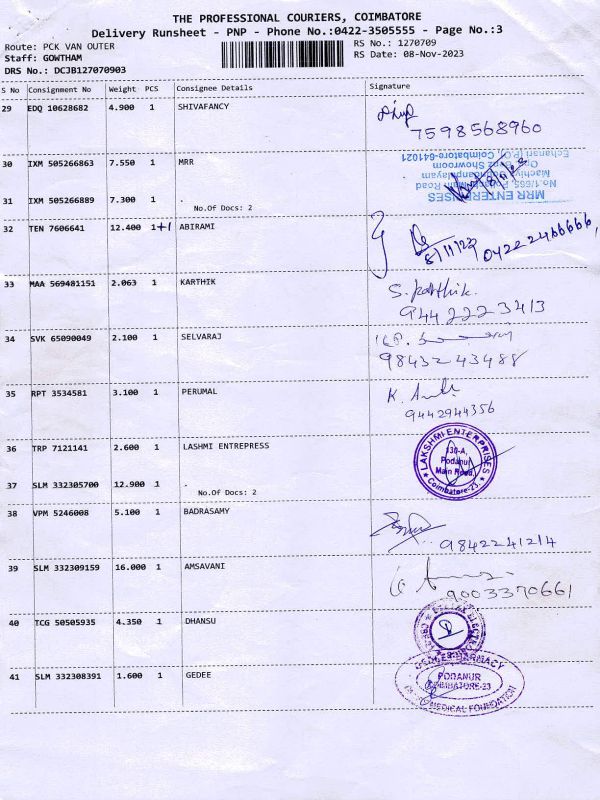 THE PROFESSIONAL COURIERS, COIMBATORE
Delivery Runsheet - PNP - Phone No.:0422-3505555 - Page No.:3
Route: PCK VAN OUTER
RS No.: 1270709
Staff: GOWTHAM
RS Date: 08-Nov-2023
DRS No.: DCJB127070903
S No Consignment No Weight PCS Consignee Details Signature
29 EDQ 10628682 4.900 1 SHIVAFANCY
7598568960
30 IXM 505266863 7.550 1 MRR
31 IXM 505266889 7.300 1
No.Of Docs: 2
MRR ENTERPRISES
No.1/665, Podanur Main Road
Opp. Benz Showroom
Echanari (P.O), Coimbatore-641021
32 TEN 7606641 12.400 1+1 ABIRAMI
8/11/23 0422 2466666,
33 MAA 569481151 2.063 1 KARTHIK
S. Karthik.
9442223413
34 SVK 65090049 2.100 1 SELVARAJ
98432 43488
35 RPT 3534581 3.100 1 PERUMAL
K.
9442944356
36 TRP 7121141 2.600 1 LASHMI ENTREPRESS
37 SLM 332305700 12.900 1 .
No.Of Docs: 2
LAKSHMI ENTERPRISES
130-A,
Podanur
Main Road,
Coimbatore-23.
38 VPM 5246008 5.100 1 BADRASAMY
9842241214
39 SLM 332309159 16.000 1 AMSAVANI
9003370661
40 TCG 50505935 4.350 1 DHANSU
41 SLM 332308391 1.600 1 GEDEE
PHARMACY
PODANUR
COIMBATORE-23
MEDICAL FOUNDATION